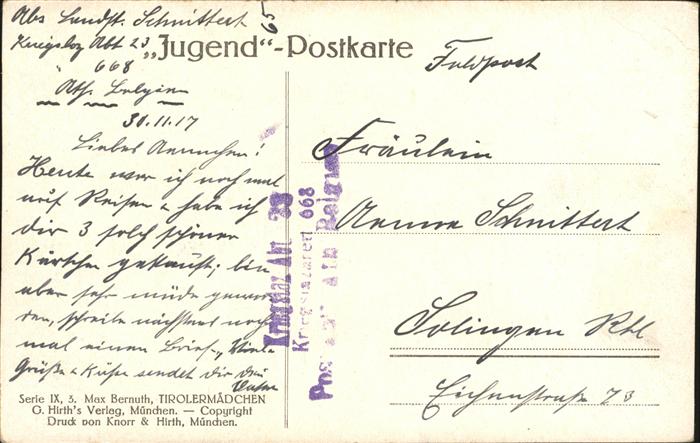 Abs Landst. Schnittert 65
Kriegslaz Abt 23
" 668
Ath. Belgien
30.11.17
Liebes Aennchen!
Heute war ich noch mal
auf Reisen & habe ich
dir 3 solch schöner
Kärtchen gekauft; bin
aber sehr müde gewor-
den, schreibe nächstens noch
mal einen Brief. Viele
Grüße & Küße sendet dir dein
Vater
„Jugend“-Postkarte
Feldpost
Fräulein
Aenne Schnittert
Solingen Rhl
Eichenstraße 73
Kriegslaz Abt
Kriegslazarett 668
Belgien
Serie IX, 3. Max Bernuth, TIROLERMÄDCHEN
G. Hirth's Verlag, München. — Copyright
Druck von Knorr & Hirth, München.